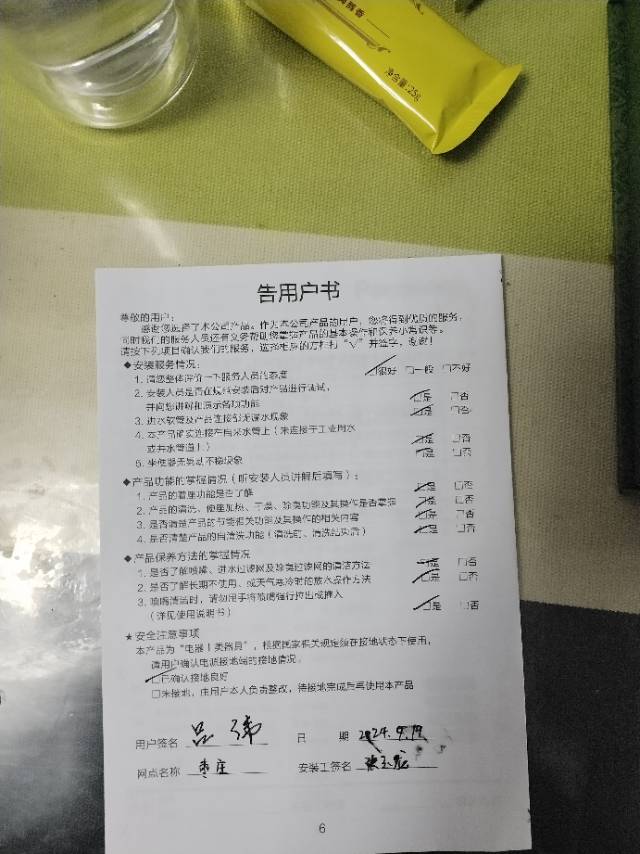 净含量:25g
告用户书
尊敬的用户:
感谢您选择了本公司产品。作为本公司产品的用户,您将得到优质的服务;
同时我们的服务人员还有义务帮助您掌握产品的基本操作和保养小常识等。
请按下列项目确认我们的服务,选择相应的方框打“√”并签字,谢谢!
◆安装服务情况:
1. 请您整体评价一下服务人员的态度 ☑很好 □一般 □不好
2. 安装人员是否在现场安装后对产品进行调试,
并向您讲解和演示各项功能 ☑是 □否
3. 进水软管及产品连接部无漏水现象 ☑是 □否
4. 本产品确实连接在自来水管上(未连接于工业用水
或井水管道上) ☑是 □否
5. 坐便器无晃动不稳现象 ☑是 □否
◆产品功能的掌握情况(听安装人员讲解后填写):
1. 产品的着座功能是否了解 ☑是 □否
2. 产品的清洗、便座加热、干燥、除臭功能及其操作是否掌握 ☑是 □否
3. 是否清楚产品的节能相关功能及其操作的相关内容 ☑是 □否
4. 是否清楚产品的自清洗功能(清洗前、清洗结束后) ☑是 □否
◆产品保养方法的掌握情况
1. 是否了解喷嘴、进水过滤网及除臭过滤网的清洁方法 ☑是 □否
2. 是否了解长期不使用、或天气寒冷时的放水操作方法 ☑是 □否
3. 喷嘴清洁时,请勿用手将喷嘴强行拉出或推入
(详见使用说明书) ☑是 □否
★安全注意事项
本产品为“电器Ⅰ类器具”,根据国家相关规定须在接地状态下使用,
请用户确认电源接地端的接地情况。
☑已确认接地良好
□未接地,由用户本人负责整改,待接地完成后再使用本产品
用户签名 日 期 2024.9.19
网点名称 枣庄 安装工签名
6